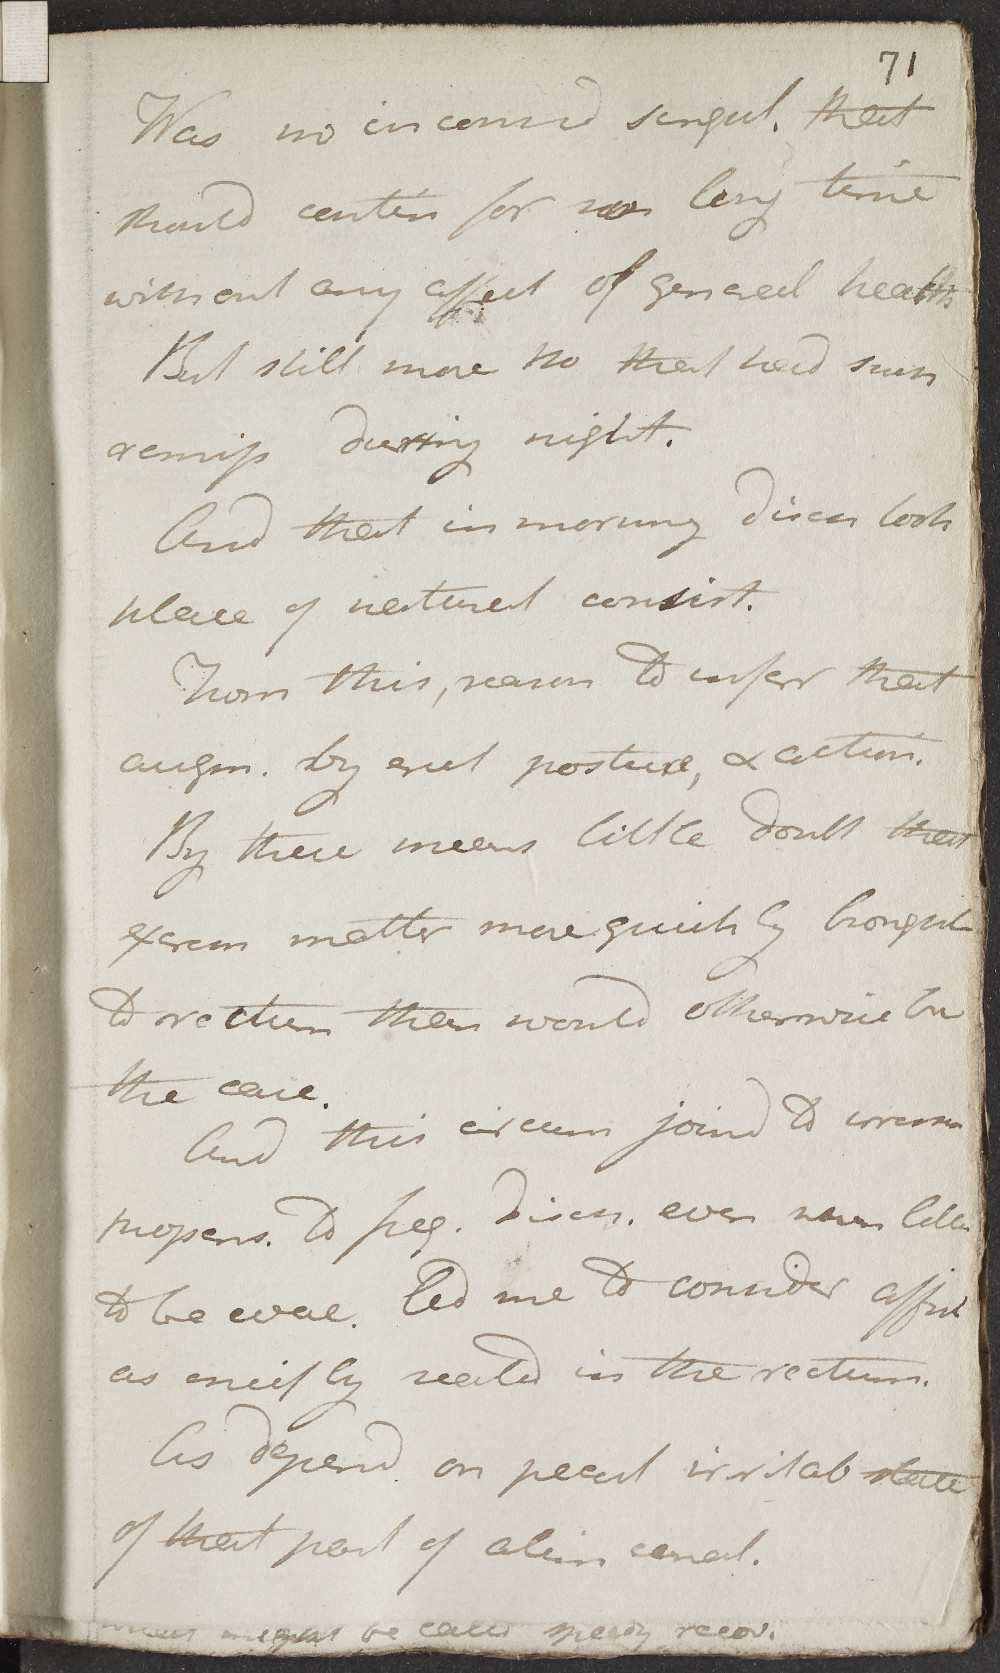 71
Was no inconsid singul. that
should contin for so long time
without any affect of general health
But still more so that had such
remiss during night.
And that in morning disch took
place of natural consist.
From this, reason to infer that
augm. by erect posture, & action.
By these means little doubt that
excrem matter more quickly brought
to rectum than would otherwise be
the case.
And this circum joind to
propens. to freq. disch. even when little
to be evac. led me to consider affect
as chiefly seated in the rectum.
As depend on pecul irritab state
of that part of alim canal.
might be called speedy recov.